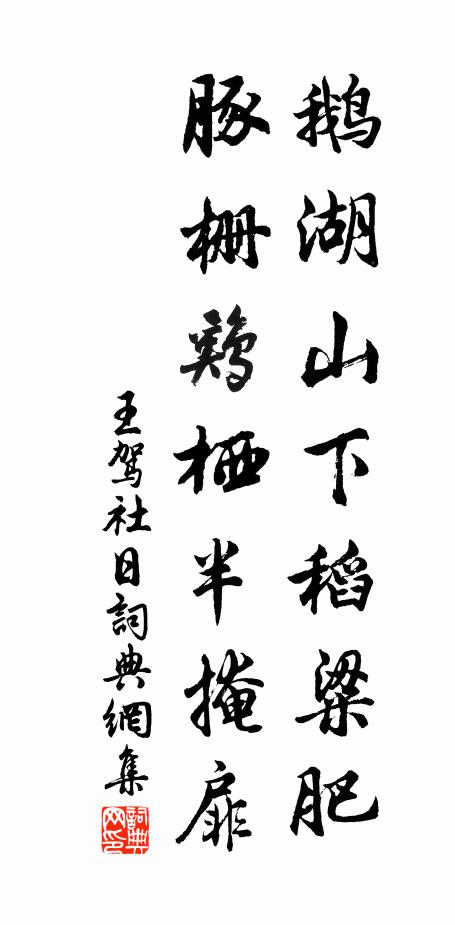 鹅湖山下稻粱肥
豚栅鷄栖半掩扉
王驾社日詞典網集
詞典網印